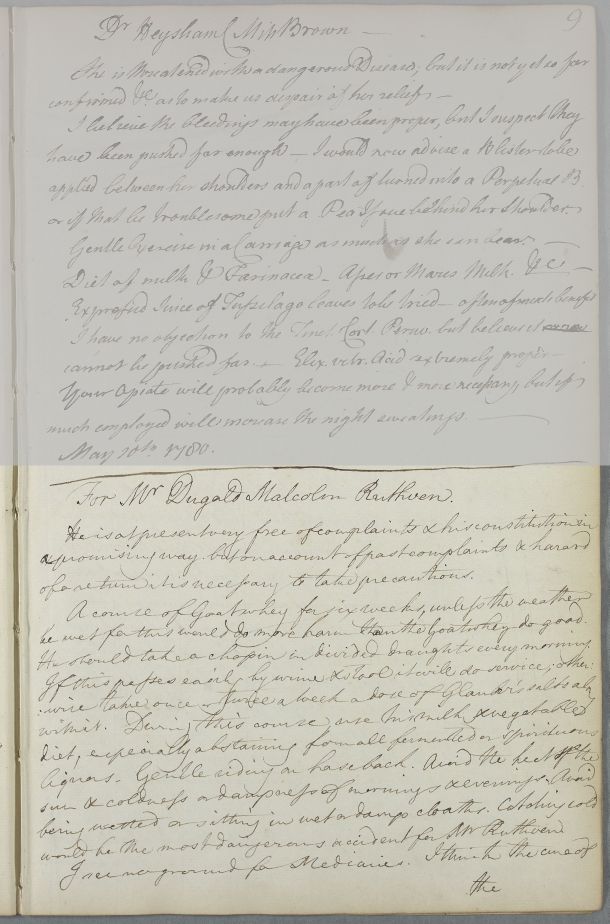 9
Dr Heysham (Miss Brown —
She is threatened with a dangerous Disease, but it is not yet so far
confirmed &c. as to make us despair of her relief —
I believe the bleedings may have been proper, but I suspect they
have been pushed far enough — I would now advise a Blister to be
applied between her shoulders and a part of turned into a Perpetual B.
or if that be troublesome put a Pea Issue behind her shoulder.
Gentle Exercise in a Carriage as much as she can bear.
Diet of milk & Farinacea — Apes or Mares Milk. &c —
Expressed Juice of Tussilago leaves to be tried — often of great benefit
I have no objection to the Tinct. Cort. Peruv. but believe it
cannot be pushed far. — Elix. vitr. Acid extremely proper —
Your Opiate will probably become more & more necessary, but if
much employed will increase the night sweatings. —
May 10th 1780.
For Mr Dugald Malcolm Ruthven.
He is at present very free of complaints & his constitution in
a promising way but on account of past complaints & hazard
of a return it is necessary to take precautions.
A course of Goat whey for six weeks, unless the weather
be wet for this would do more harm than the Goatwhey do good.
He should take a chopin in divided draughts every morning
If this passes easily by urine & stool it will do service; other:
:wise take once or twice a week a dose of Glauber's salts along
with it. During this course use his milk & vegetable
diet, especially abstaining from all fermented or spirituous
liquors. Gentle riding on horseback. Avoid the heat of the
sun & coldness or dampness of mornings & evenings. Avoid
being wetted or sitting in wet or damp cloaths. Catching cold
would be the most dangerous accident for Mr Ruthven
I see no ground for Medicines. I think the cure of
the